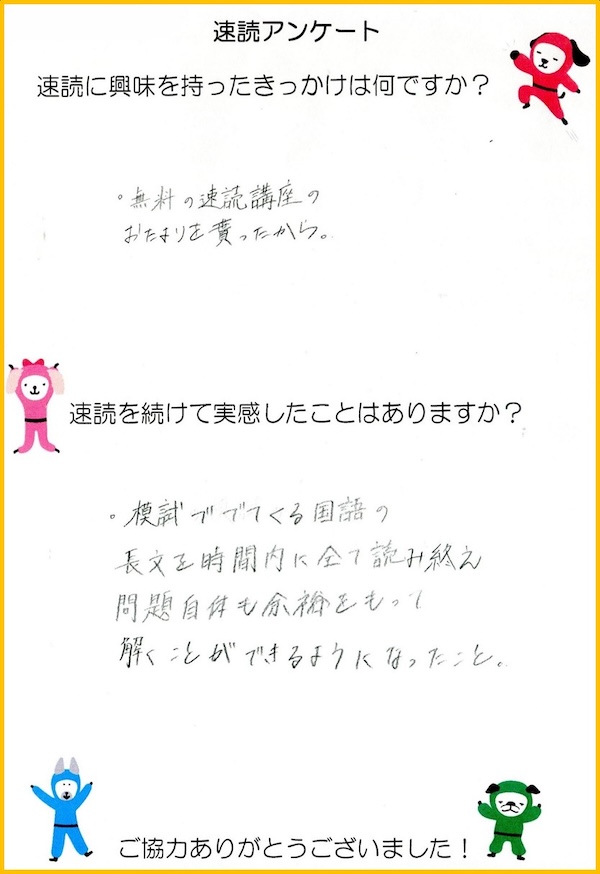 速読アンケート
速読に興味を持ったきっかけは何ですか？
・無料の速読講座の
おたよりを貰ったから。
速読を続けて実感したことはありますか？
・模試ででてくる国語の
長文を時間内に全て読み終え
問題自体も余裕をもって
解くことができるようになったこと。
ご協力ありがとうございました！